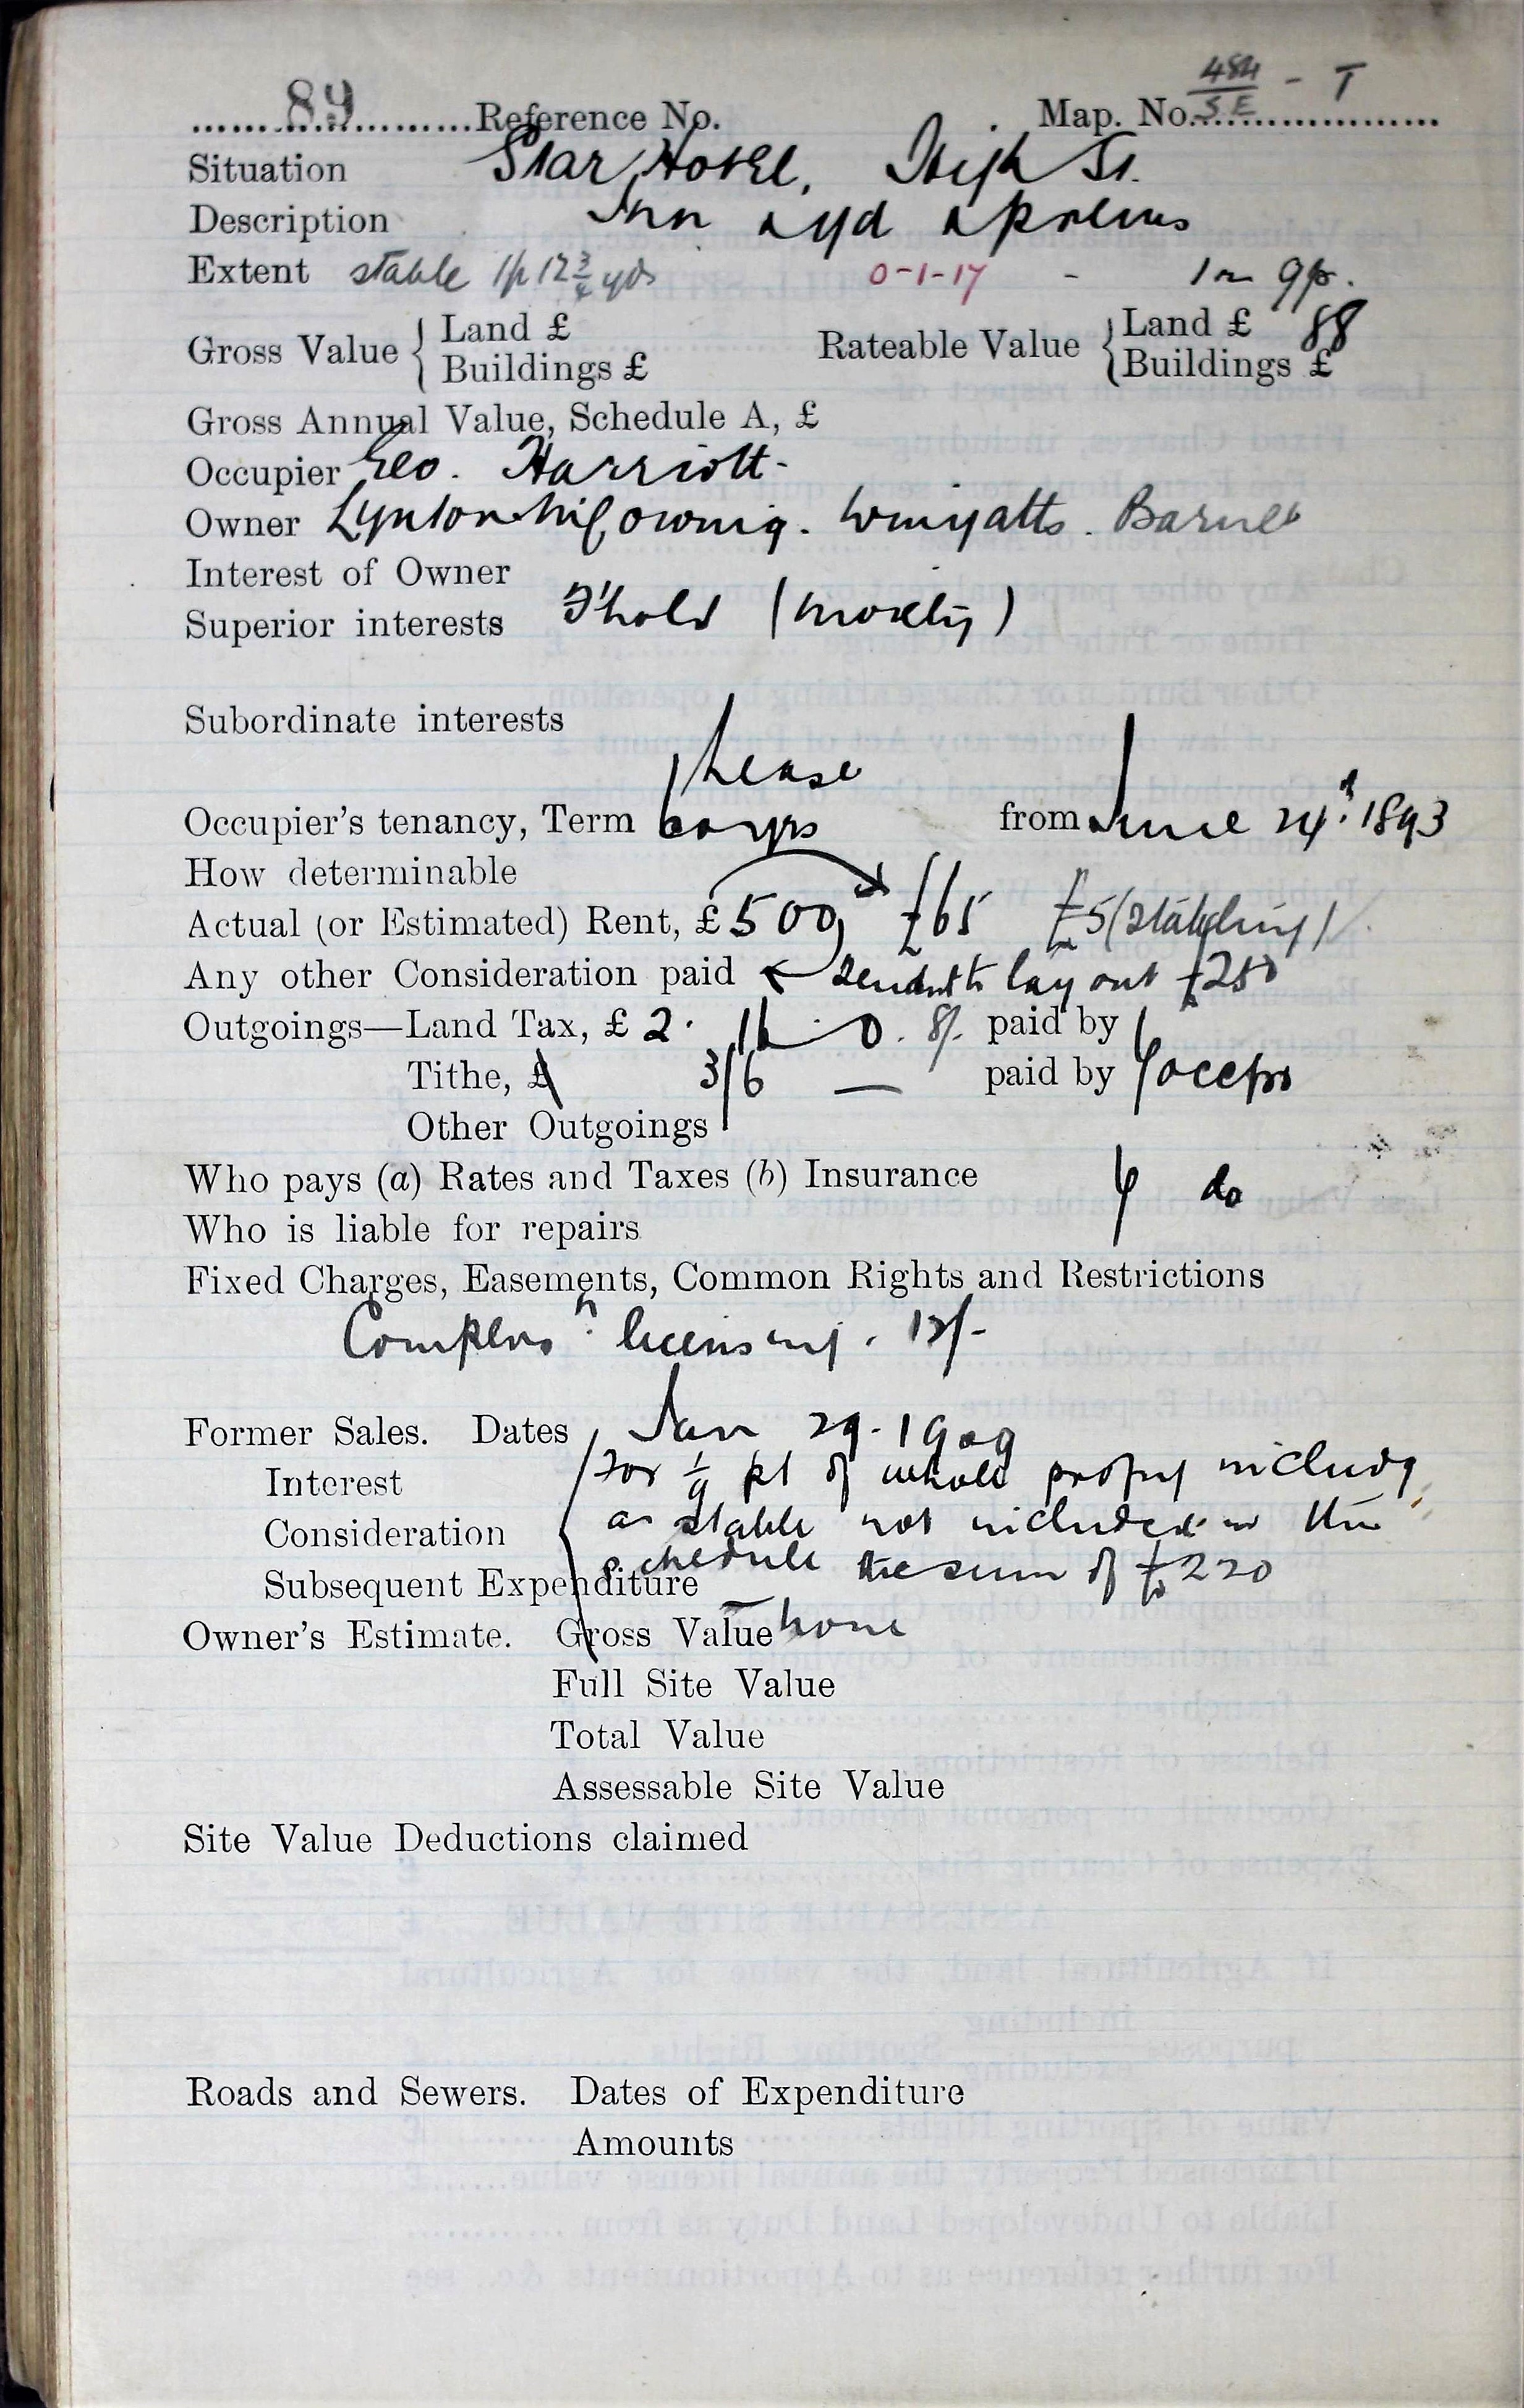 89 Reference No. Map. No. 48A/S.E - T
Situation Star Hotel, High St.
Description Inn yd & prems
Extent stable 1p 12 3/4 yds 0-1-17 - 1r 9p.
Gross Value { Land £ Rateable Value { Land £ 88
Buildings £ Buildings £
Gross Annual Value, Schedule A, £
Occupier Geo. Harriott
Owner
Interest of Owner
Superior interests F'hold
Subordinate interests
Lease
Occupier's tenancy, Term yrs from June 24th 1893
How determinable
Actual (or Estimated) Rent, £500, £65 £5 (stabling)
Any other Consideration paid to lay out £250
Outgoings—Land Tax, £2. 16 . 0. 8/- paid by
Tithe, £ 3/6 — paid by occpr
Other Outgoings
Who pays (a) Rates and Taxes (b) Insurance do
Who is liable for repairs
Fixed Charges, Easements, Common Rights and Restrictions
Compensn. licensing.
Former Sales. Dates Jan 29. 1909
Interest for 1/9 pt of whole propy includg
Consideration a stable not included in this
Subsequent Expenditure schedule the sum of £220
Owner's Estimate. Gross Value none
Full Site Value
Total Value
Assessable Site Value
Site Value Deductions claimed
Roads and Sewers. Dates of Expenditure
Amounts